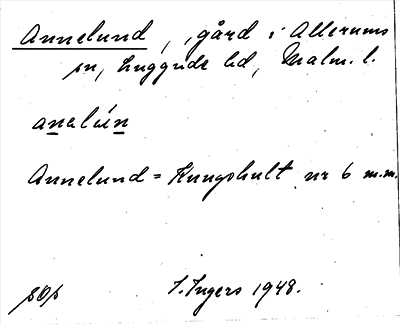 Annelund, gård i Allerums
sn, Luggude hd, Malm. l.
anelún
Annelund = Kungshult nr 6 m.m.
I. Ingers 1948.